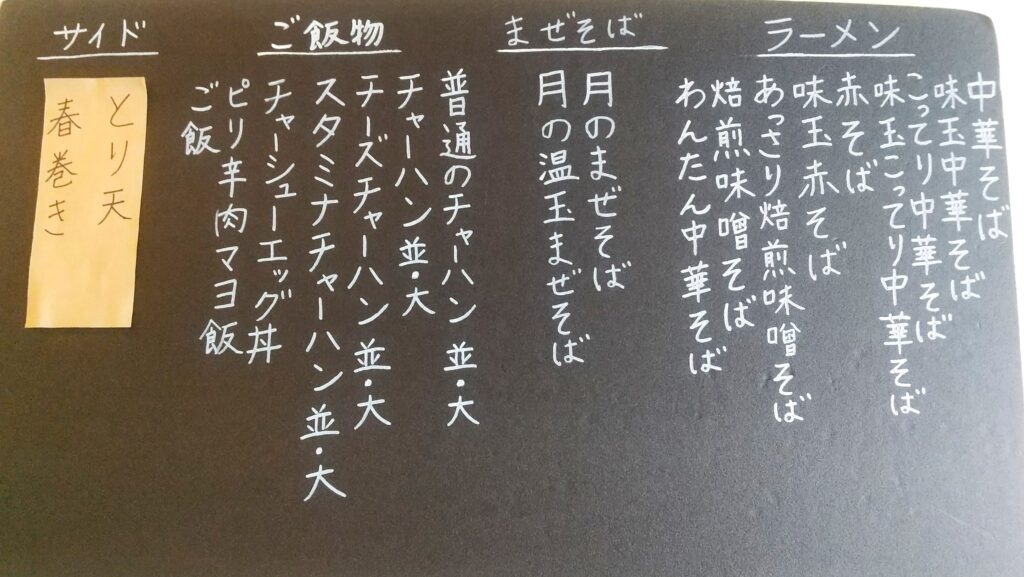 ラーメン
中華そば
味玉中華そば
こってり中華そば
味玉こってり中華そば
赤そば
味玉赤そば
あっさり焙煎味噌そば
焙煎味噌そば
わんたん中華そば
まぜそば
月のまぜそば
月の温玉まぜそば
ご飯物
普通のチャーハン 並・大
チャーハン 並・大
チーズチャーハン 並・大
スタミナチャーハン 並・大
チャーシューエッグ丼
ピリ辛肉マヨ飯
ご飯
サイド
とり天
春巻き